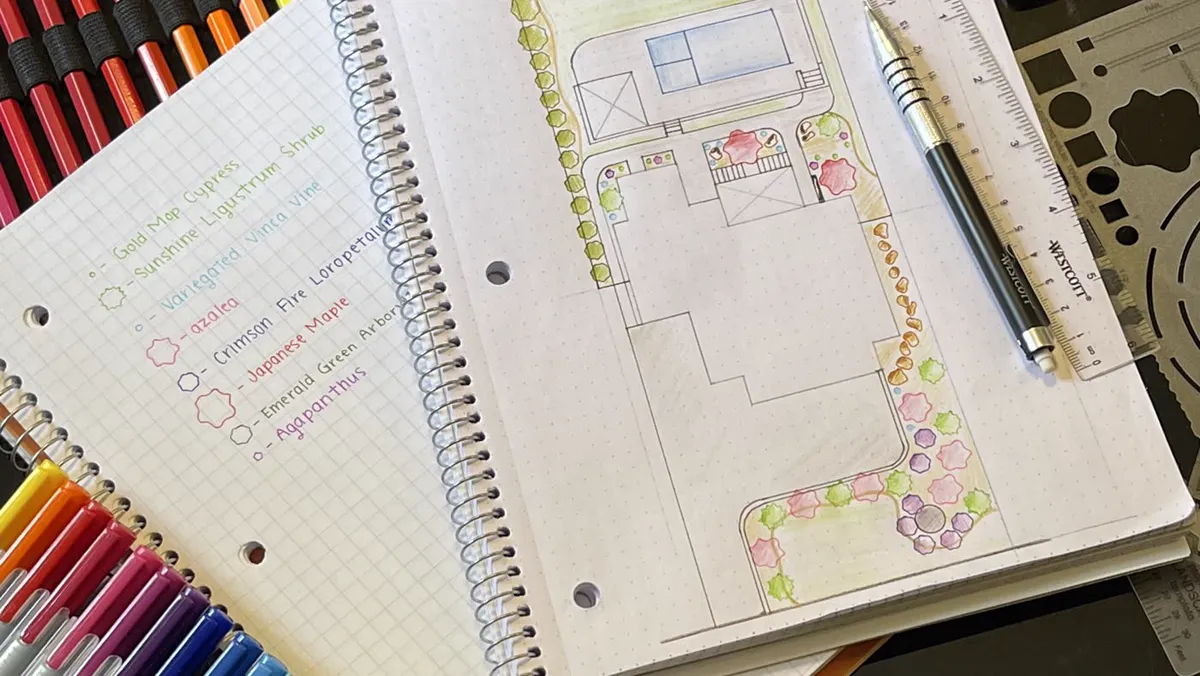 - Gold Mop Cypress
- Sunshine Ligustrum Shrub
- Variegated Vinca Vine
- azalea
- Crimson Fire Loropetalum
- Japanese Maple
- Emerald Green Arbor
- Agapanthus
WESTCOTT
WESTCOTT